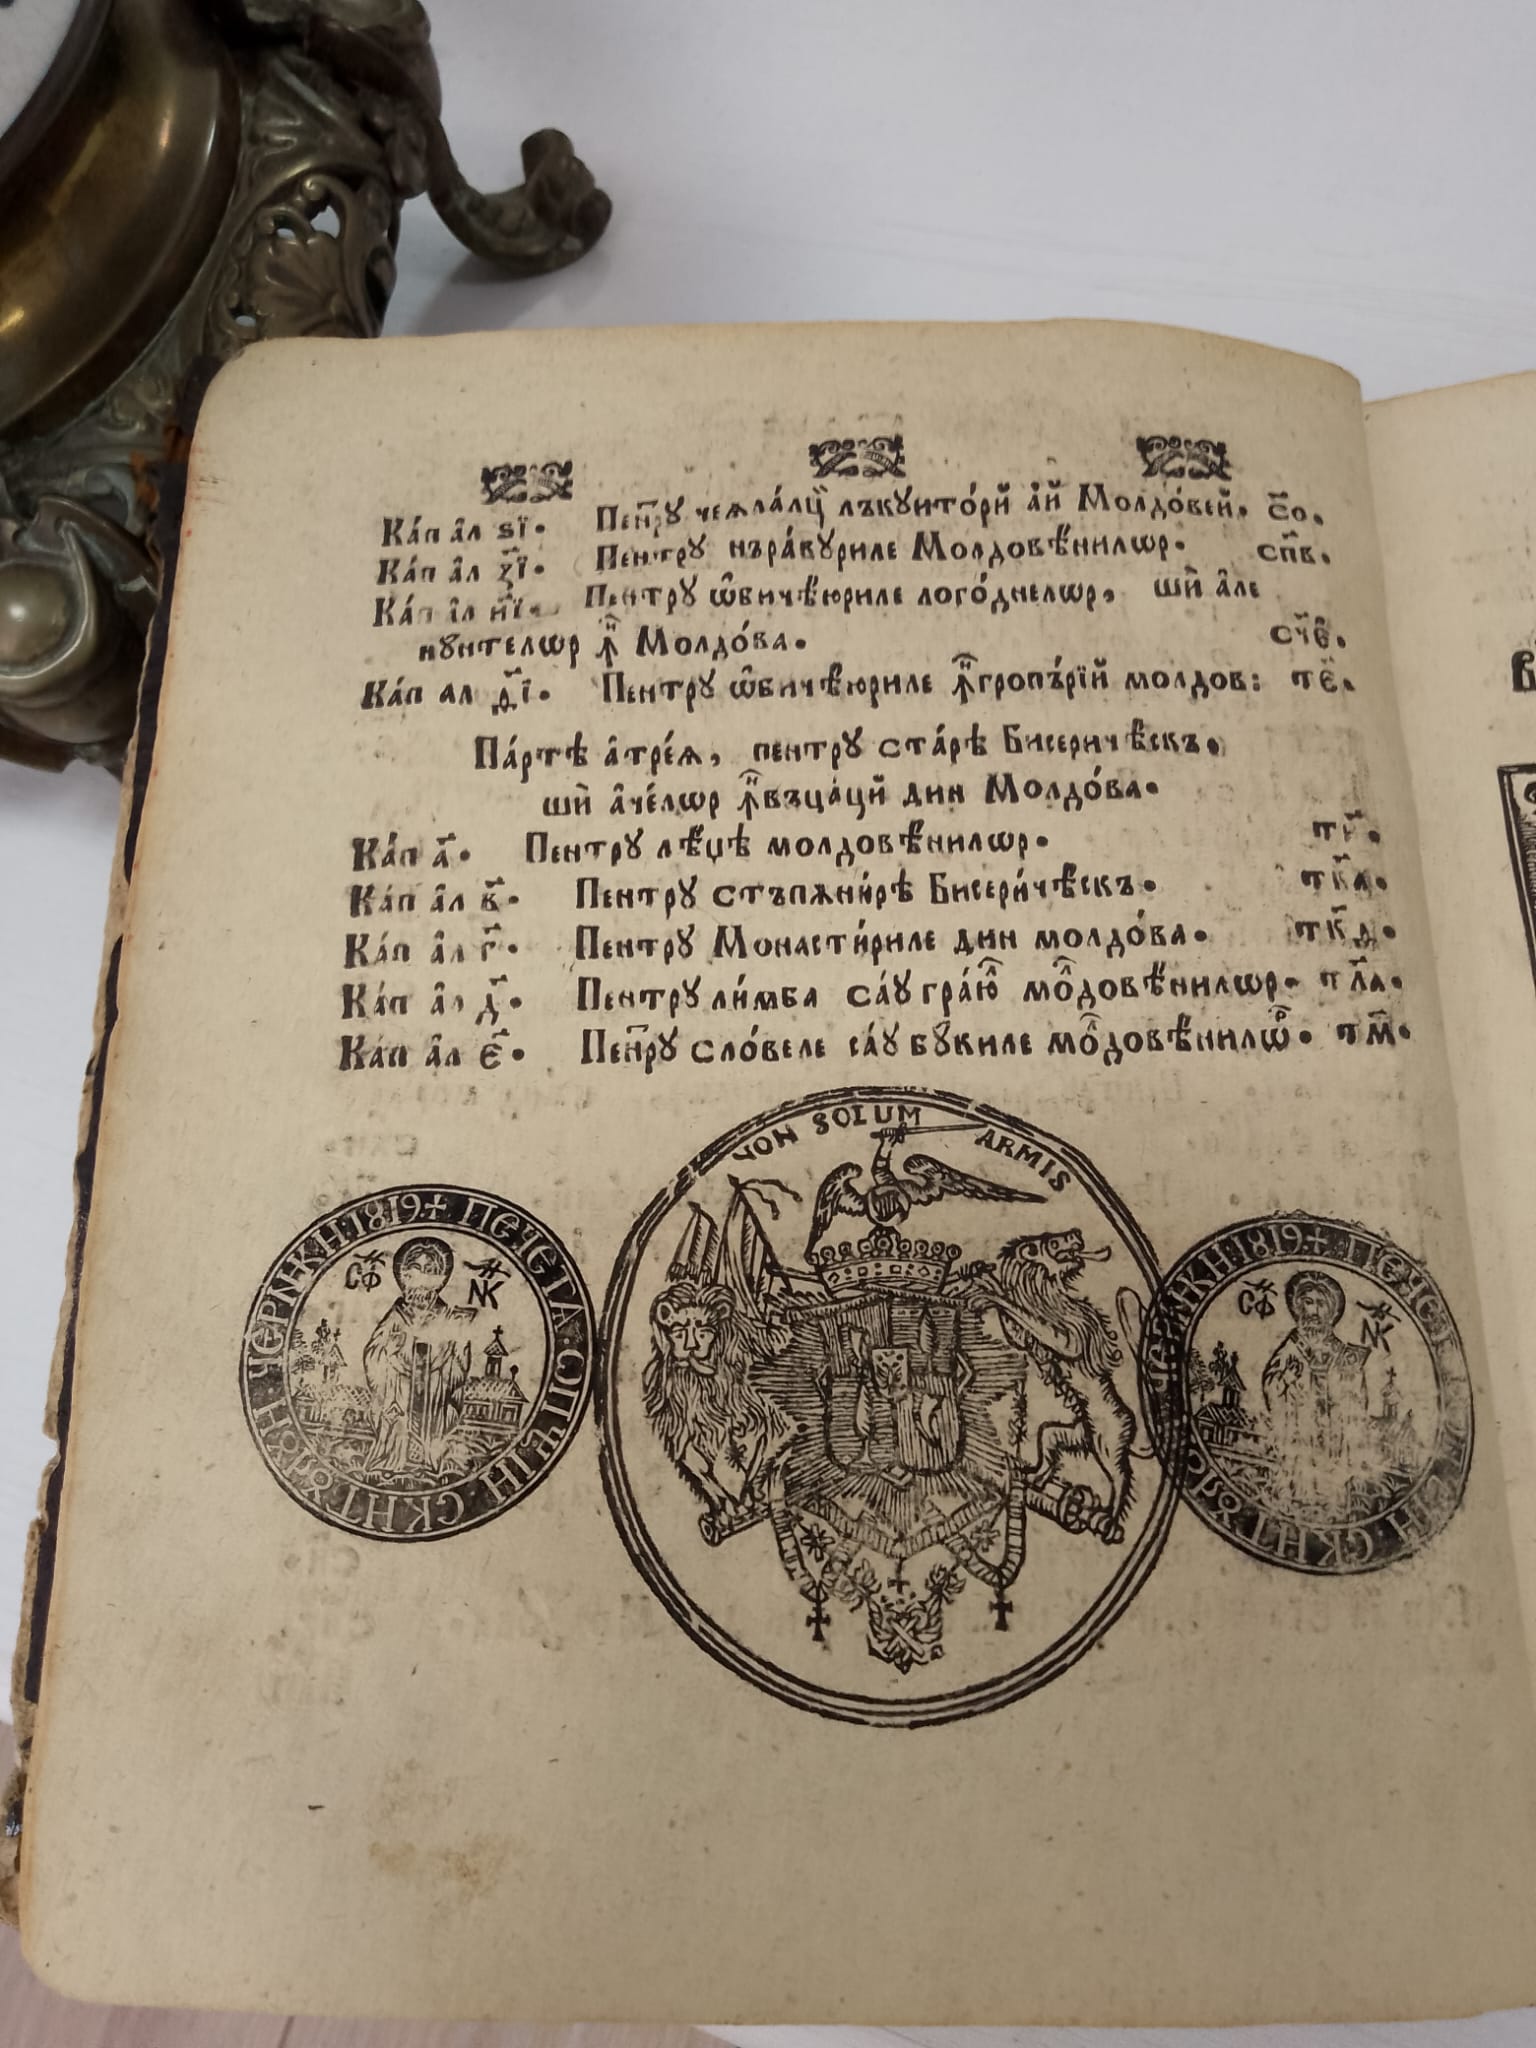 Ка́п а҆л ѕ҃і. Пен҇трꙋ чеѧла́лцй лъкꙋито́рй а҆й Молдо́вей. с҃о.
Ка́п а҆л з҃і. Пентрꙋ нъра́вꙋриле Молдовѣ́нилѡр. сп҃в.
Ка́п а҆л и҃і. Пентрꙋ ѡ҆бичѣ́юриле лого́днелѡр, шѝ а҆ле
нꙋнтелѡр ꙟ҆ Молдо́ва. сч҃е.
Ка́п ал ѳ҃і. Пентрꙋ ѡ҆бичѣ́юриле ꙟ҆гропъ́рїй молдов: т҃е.
Па́ртѣ а҆тре́ѧ, пентрꙋ ста́рѣ Бисеричѣ́скъ.
шѝ а҆че́лѡр ꙟ҆въца́цй дин Молдо́ва.
Ка́п а҃. Пентрꙋ лѣ́џѣ молдовѣ́нилѡр.
Ка́п а҆л в҃. Пентрꙋ стъпѫни́рѣ Бисери́чѣскъ. тк҃а.
Ка́п а҆л г҃. Пентрꙋ Монасти́риле дин молдо́ва. тк҃д.
Ка́п а҆л д҃. Пентрꙋ ли́мба са́ꙋ гра́юл мо́лдовѣ́нилѡр. тл҃а.
Ка́п а҆л є҃. Пен҇трꙋ сло́веле са́ꙋ бꙋ́киле мо́лдовѣ́нилѡр. тм҃.
NON SOLUM ARMIS
ЧЕРНИКИ 1819 + ПЕЧЕТА · СФИТЕЙ · СКИТ
СФ НК
ИКИ 1819 + ПЕЧЕТ СКИТ
СФ НК